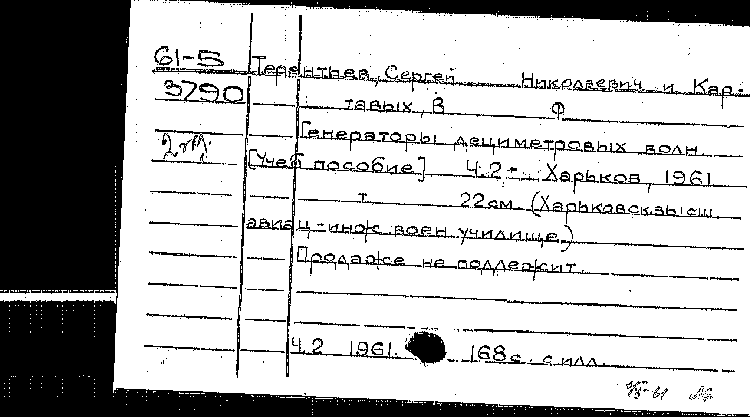 61-5 Терентьев, Сергей Николаевич и Кар-
3790 тавых, В Ф
Генераторы дециметровых волн.
2 [Учеб пособие] Ч.2- Харьков, 1961
т 22см (Харьковск.высш.
авиац-инж воен училище)
Продаже не подлежит.
Ч.2 1961. 168с. с илл.